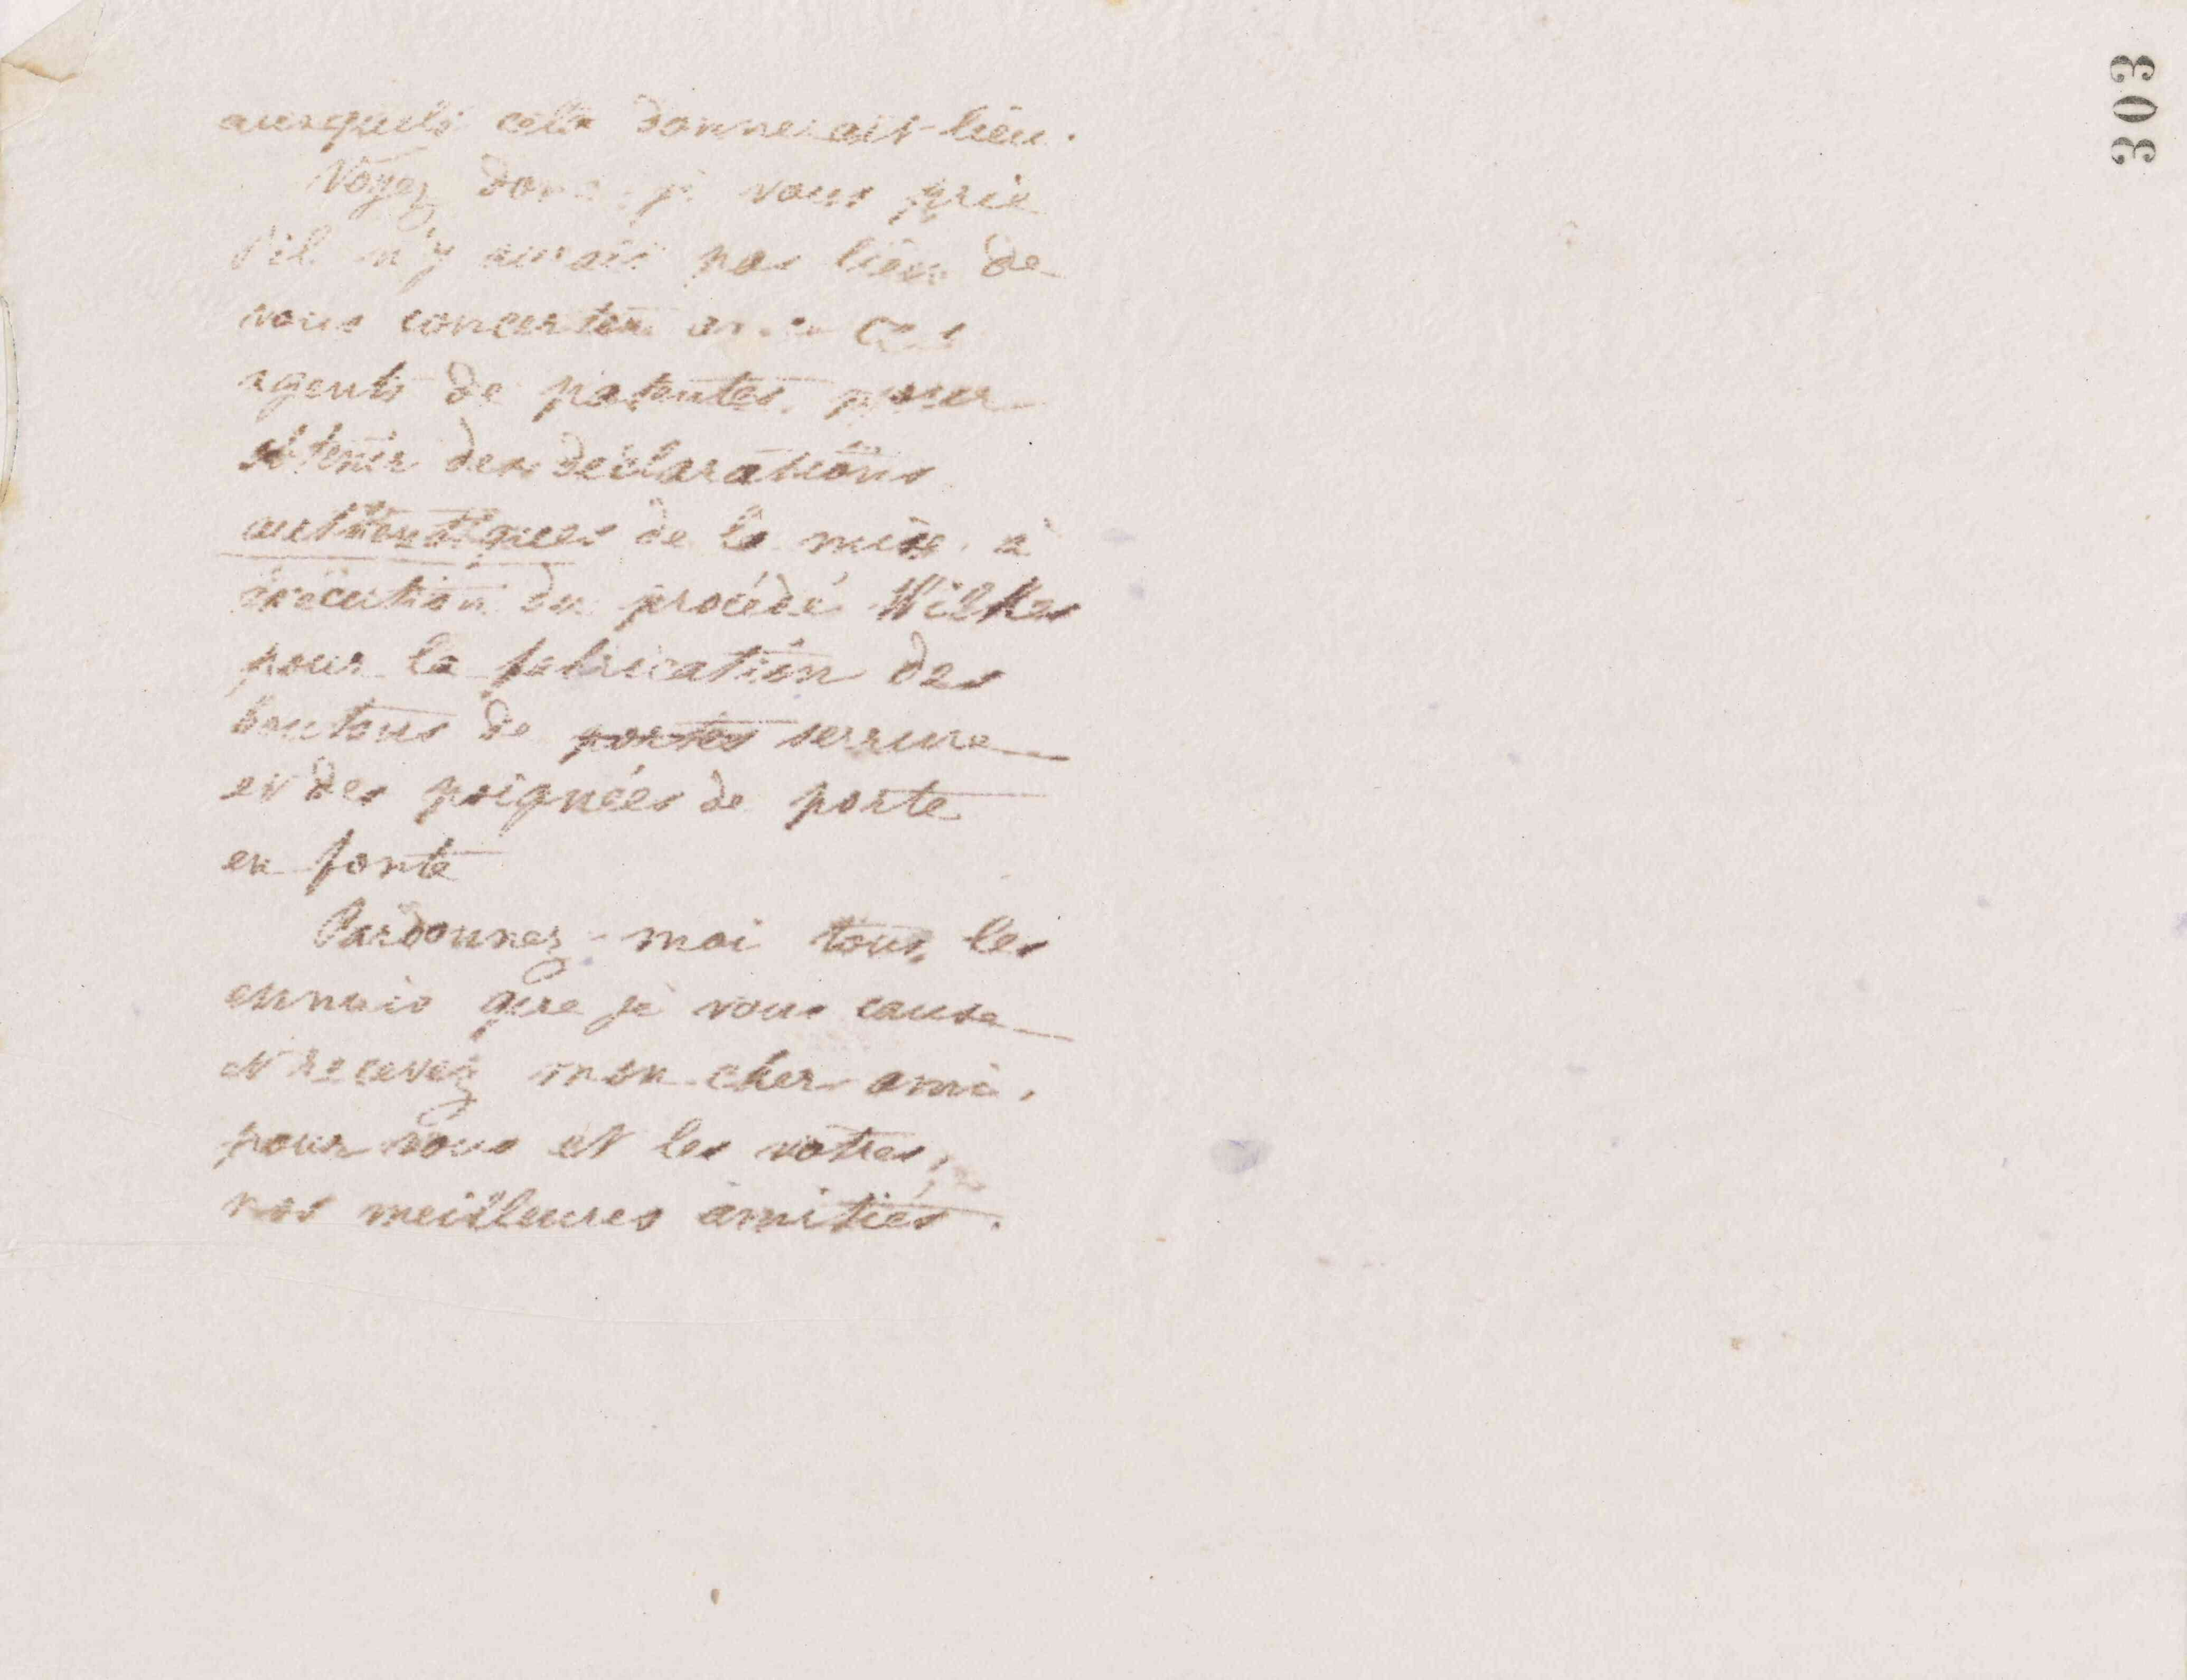 auxquels cela donnerait lieu.
Voyez donc je vous prie
s'il n'y aurait pas lieu de
vous concerter avec ces
agents de patentes pour
obtenir des déclarations
authentiques de la mise à
exécution du procédé Wilkes
pour la fabrication des
boutons de portes serrure
et des poignées de porte
en fonte
Pardonnez-moi tous les
ennuis que je vous cause
et recevez mon cher ami,
pour vous et les votres,
nos meilleures amitiés.
303